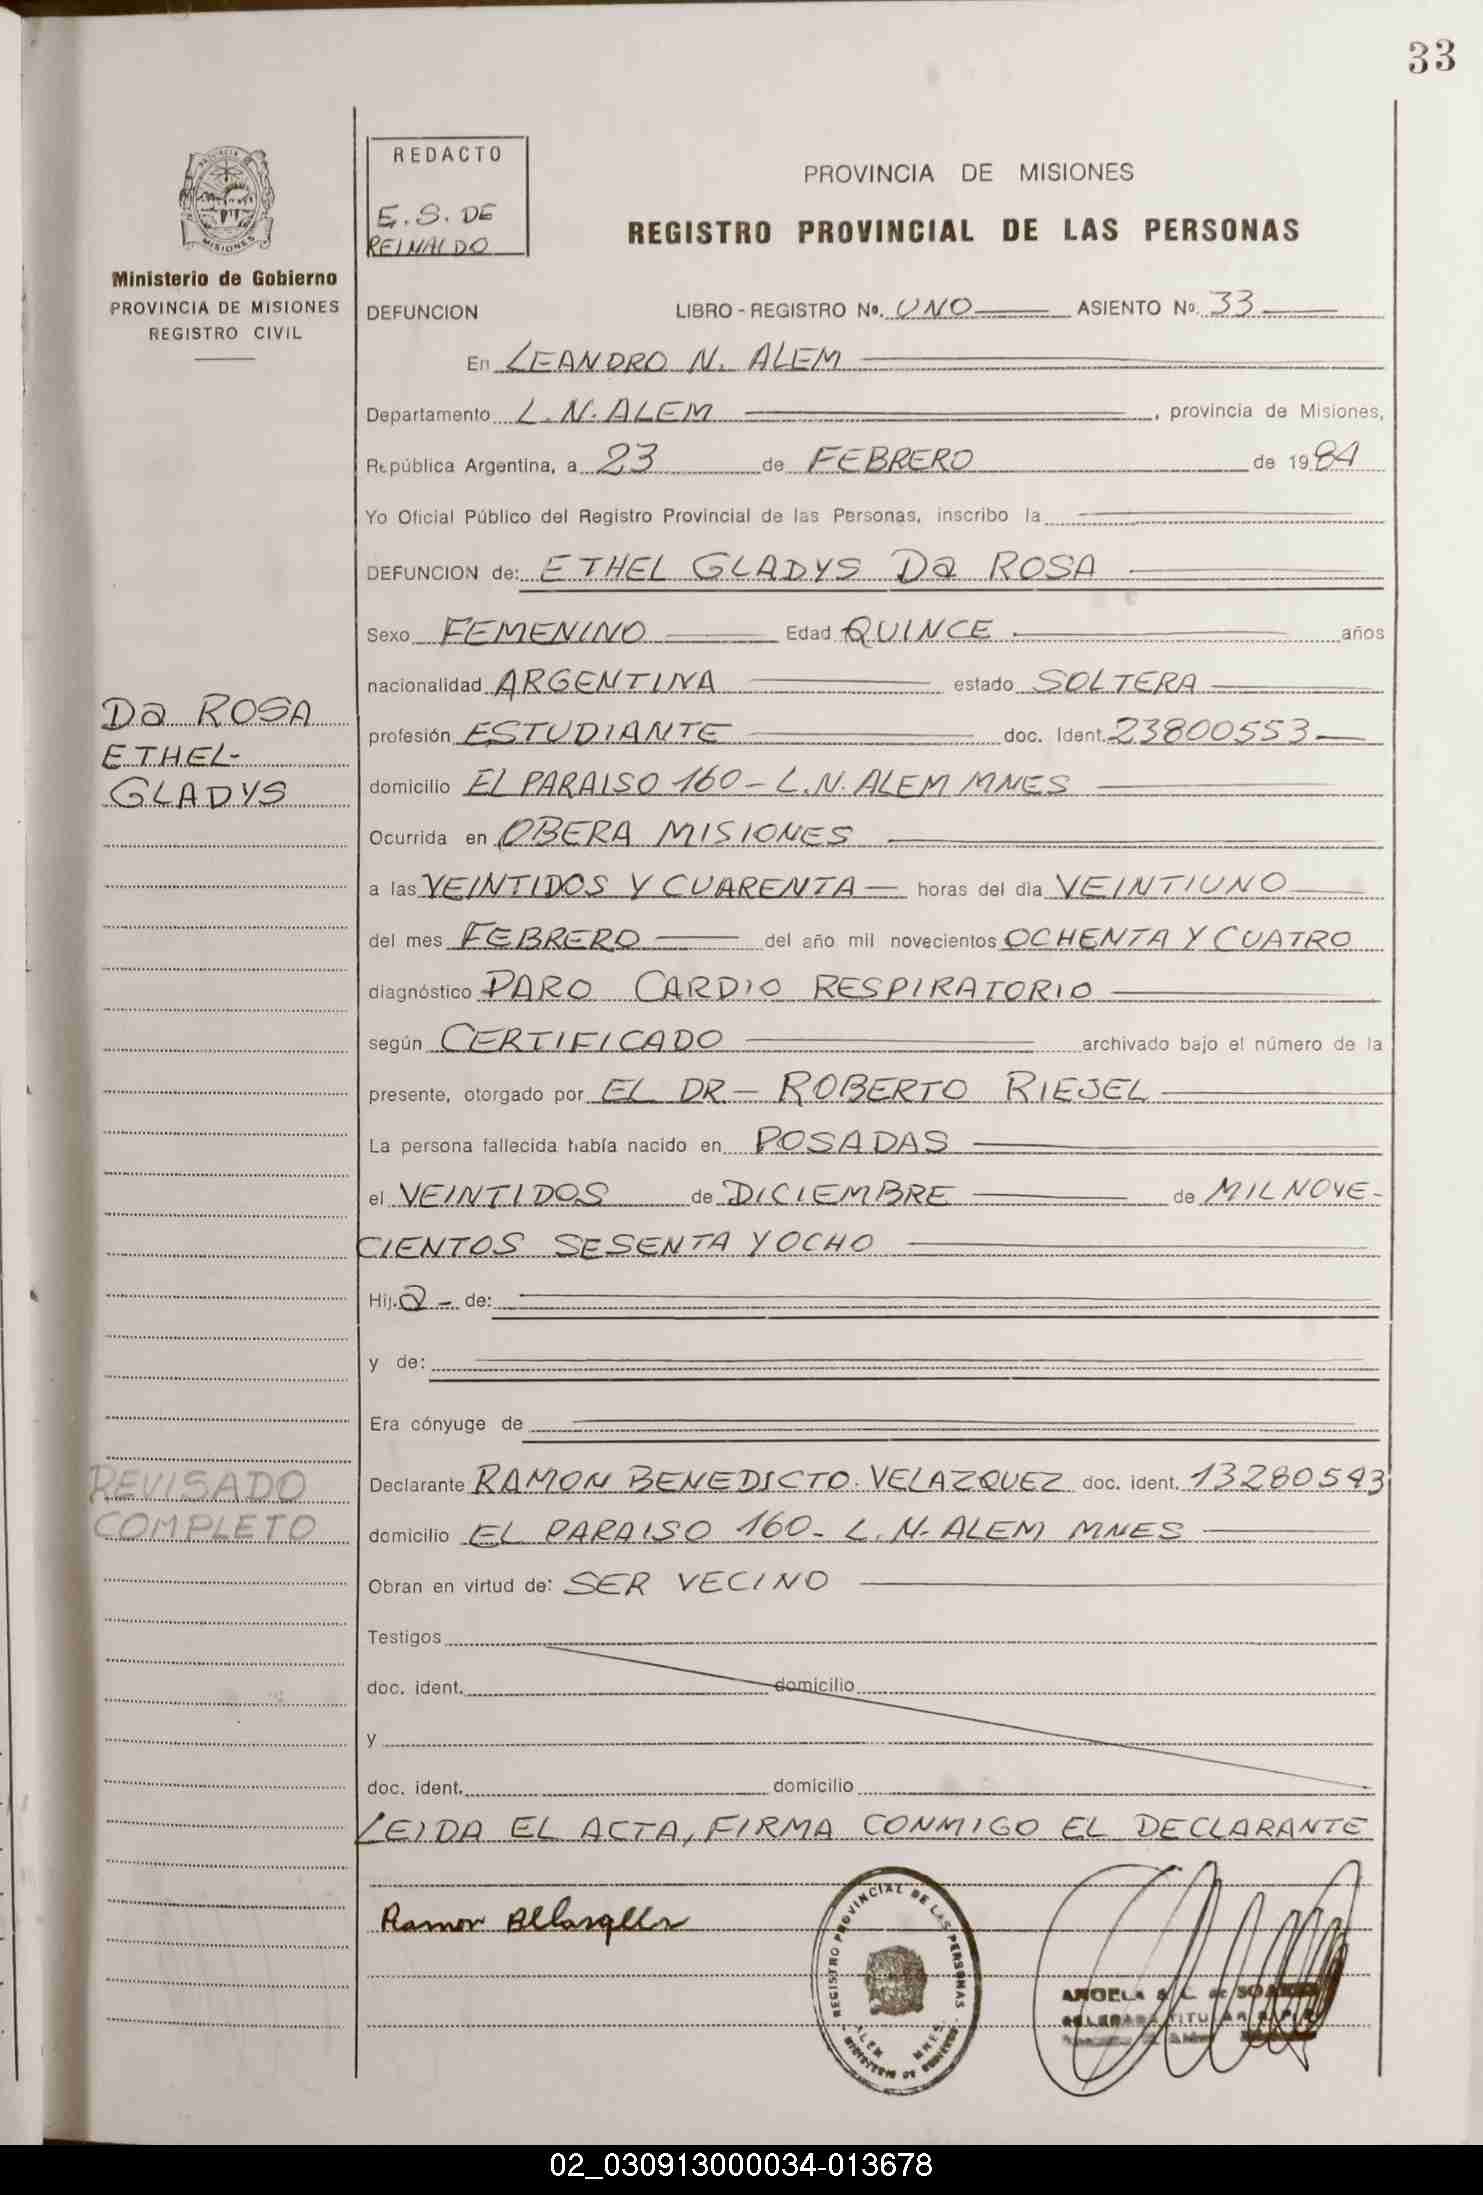 33
REDACTO
E. S. DE
REINALDO
PROVINCIA DE MISIONES
REGISTRO PROVINCIAL DE LAS PERSONAS
Ministerio de Gobierno
PROVINCIA DE MISIONES
REGISTRO CIVIL
DEFUNCION LIBRO - REGISTRO Nº. UNO ASIENTO Nº. 33
En LEANDRO N. ALEM
Departamento L. N. ALEM, provincia de Misiones,
República Argentina, a 23 de FEBRERO de 1984
Yo Oficial Público del Registro Provincial de las Personas, inscribo la
DEFUNCION de: ETHEL GLADYS Da ROSA
Sexo FEMENINO Edad QUINCE años
nacionalidad ARGENTINA estado SOLTERA
Da ROSA
ETHEL-
GLADYS
profesión ESTUDIANTE doc. Ident. 23800553
domicilio EL PARAISO 160 - L.N. ALEM MNES
Ocurrida en OBERA MISIONES
a las VEINTIDOS Y CUARENTA horas del dia VEINTIUNO
del mes FEBRERO del año mil novecientos OCHENTA Y CUATRO
diagnóstico PARO CARDIO RESPIRATORIO
según CERTIFICADO archivado bajo el número de la
presente, otorgado por EL DR - ROBERTO RIEJEL
La persona fallecida había nacido en POSADAS
el VEINTIDOS de DICIEMBRE de MIL NOVE-
CIENTOS SESENTA Y OCHO
Hij. a - de:
y de:
Era cónyuge de
REVISADO
COMPLETO
Declarante RAMON BENEDICTO. VELAZQUEZ doc. ident. 13280543
domicilio EL PARAISO 160 - L. N. ALEM MNES
Obran en virtud de: SER VECINO
Testigos
doc. ident. domicilio
y
doc. ident. domicilio
LEIDA EL ACTA, FIRMA CONMIGO EL DECLARANTE
Ramon
REGISTRO PROVINCIAL DE LAS PERSONAS
ALEM MNES.
ANGELA
TITULAR
02_030913000034-013678